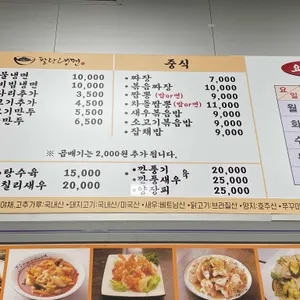 팔당냉면
물냉면 10,000
비빔냉면 10,000
추가 3,500
4,500
만두 5,500
중식
• 짜장 7,000
• 볶음짜장 10,000
• 짬뽕 (밥/면) 9,000
• 차돌짬뽕 (밥/면) 11,000
• 새우볶음밥 9,000
• 소고기볶음밥 9,000
• 잡채밥 9,000
※ 곱배기는 2,000원 추가 됩니다.
탕수육 15,000
칠리새우 20,000
• 깐풍기 20,000
• 깐풍새우 25,000
• 양장피 25,000
야채,고추가루:국내산 / 돼지고기:국내산/미국산 • 새우:베트남산 / 닭고기:브라질산 / 양지:호주산 /
일
월
화
수